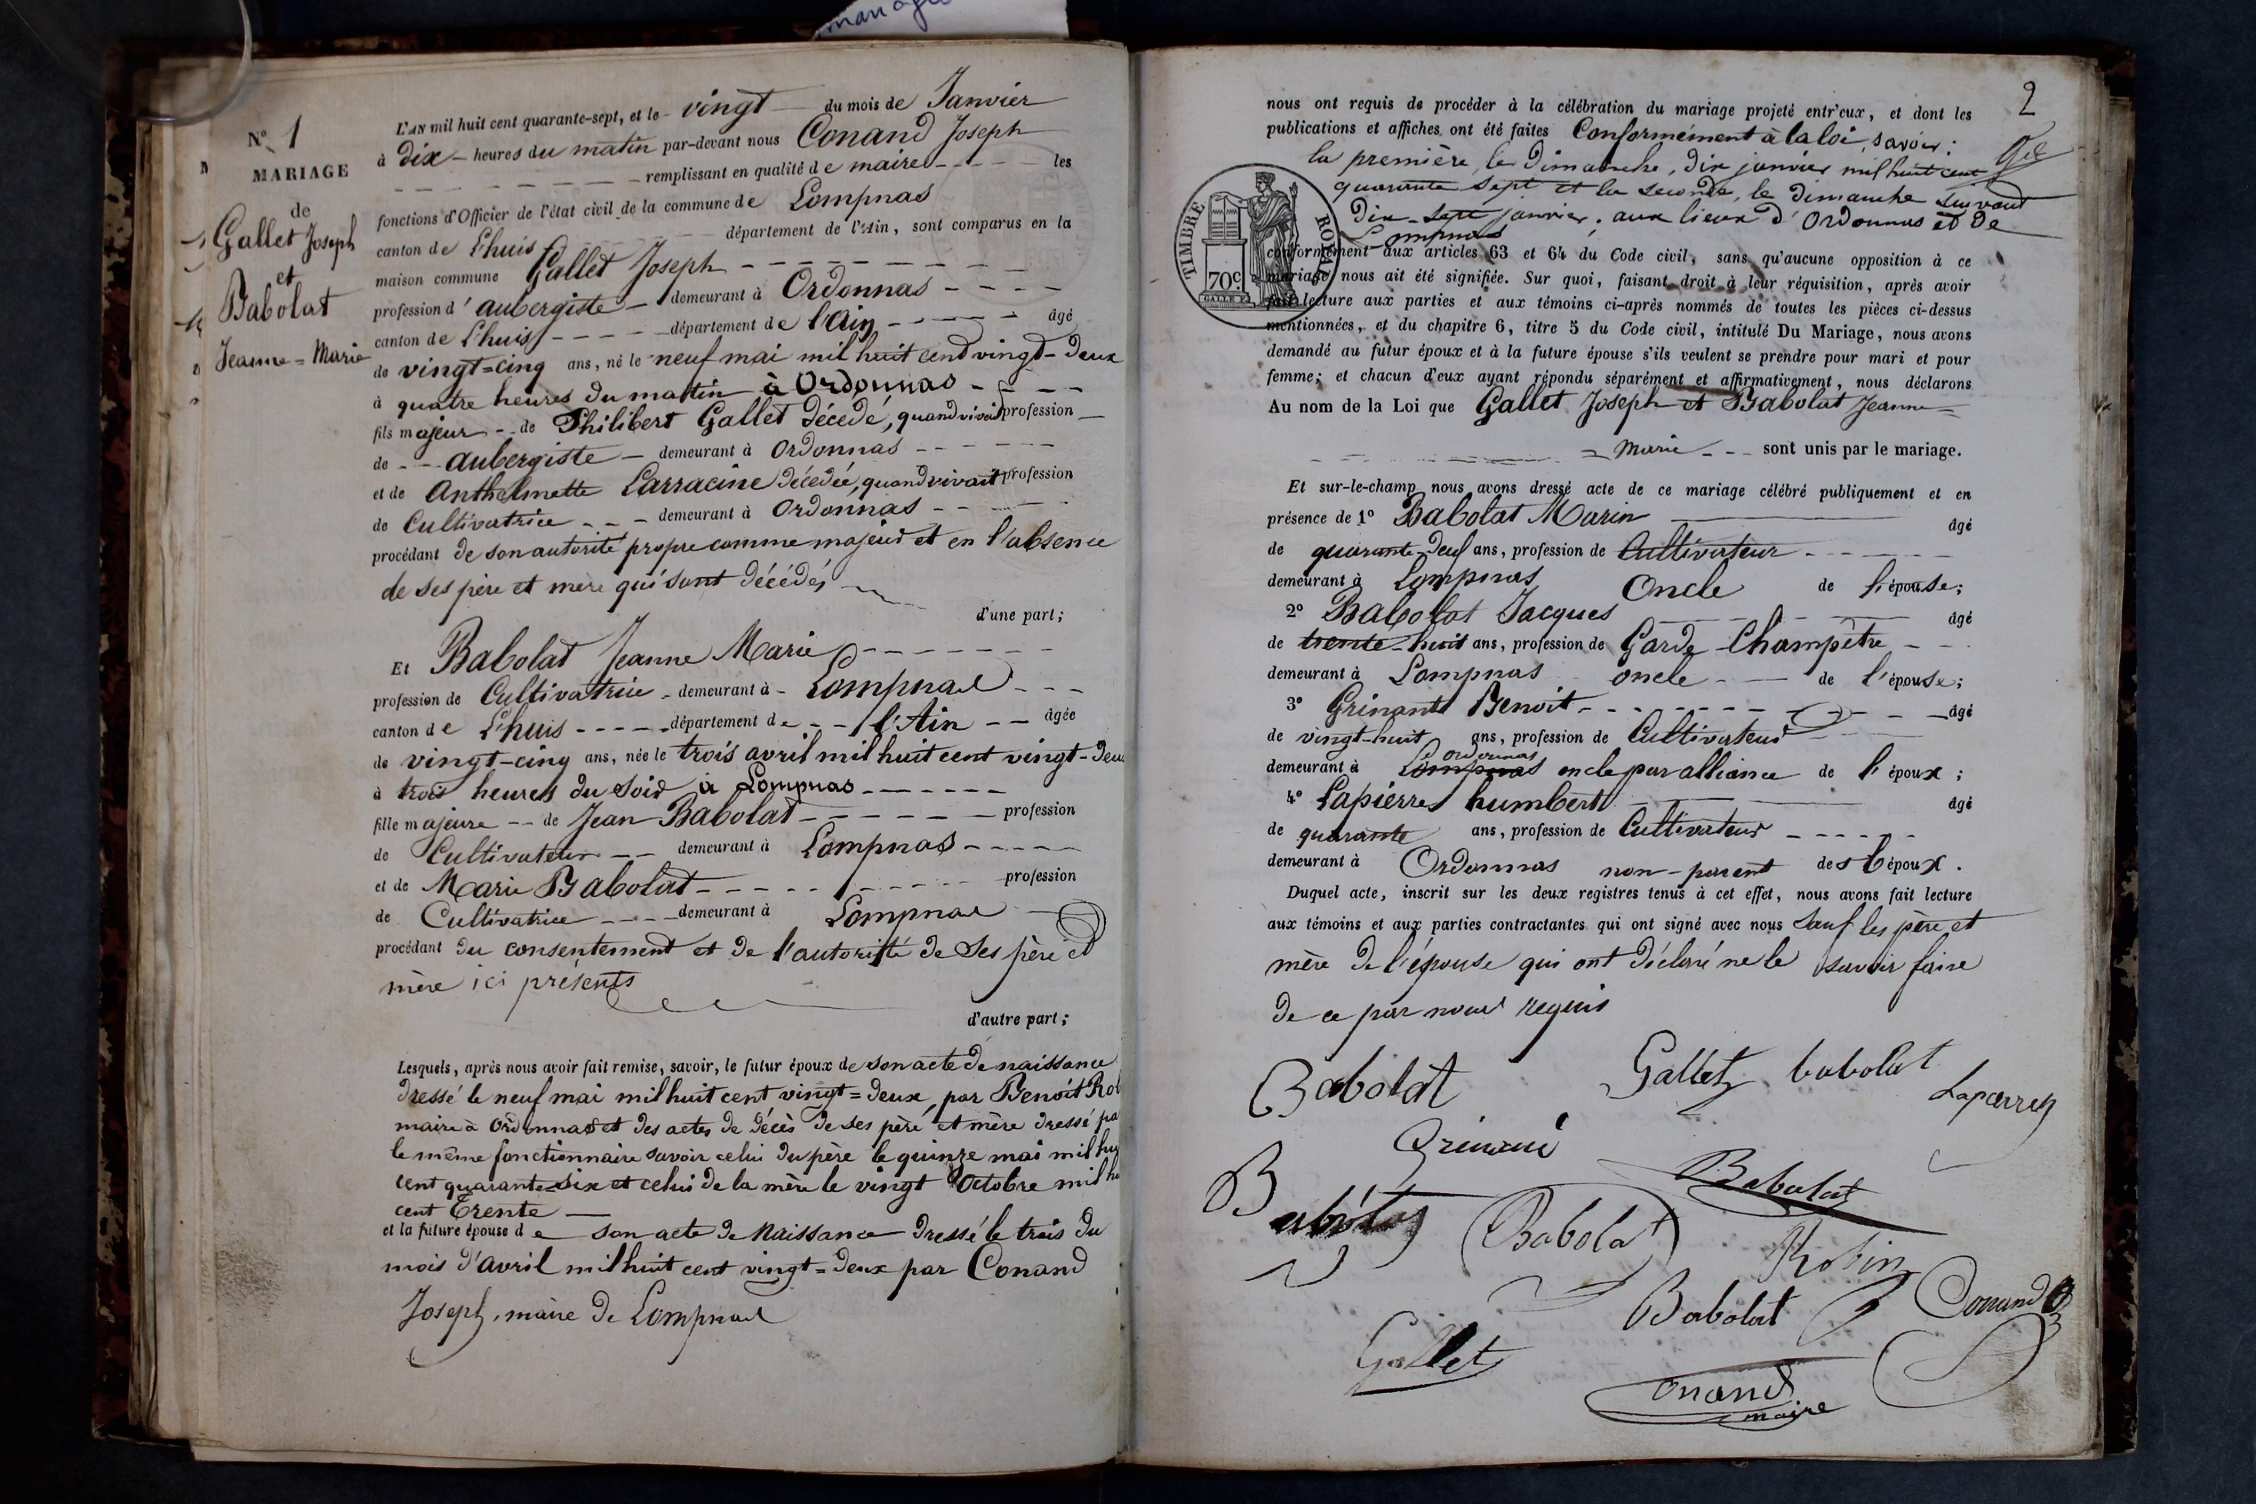 mariage
N.° 1
MARIAGE
de
Gallet Joseph
et
Babolat
Jeanne = Marie
L'AN mil huit cent quarante-sept, et le vingt du mois de Janvier
à dix heures du matin par-devant nous Conand Joseph
remplissant en qualité de maire les
fonctions d'Officier de l'état civil de la commune de Lompnas
canton de Lhuis département de l'Ain, sont comparus en la
maison commune Gallet Joseph
profession d'aubergiste demeurant à Ordonnas
canton de Lhuis département de l'Ain âgé
de vingt=cinq ans, né le neuf mai mil huit cent vingt-deux
à quatre heures du matin à Ordonnas
fils majeur de Philibert Gallet décédé, quand vivait profession
de aubergiste demeurant à Ordonnas
et de Anthelmette Larracine décédée, quand vivait profession
de Cultivatrice demeurant à Ordonnas
procédant de son autorité propre comme majeur et en l'absence
de ses père et mère qui sont décédés
d'une part;
Et Babolat Jeanne Marie
profession de Cultivatrice demeurant à Lompnas
canton de Lhuis département de l'Ain âgée
de vingt-cinq ans, née le trois avril mil huit cent vingt-deux
à trois heures du soir à Lompnas
fille majeure de Jean Babolat profession
de Cultivateur demeurant à Lompnas
et de Marie Babolat profession
de Cultivatrice demeurant à Lompnas
procédant du consentement et de l'autorité de ses père et
mère ici présents
d'autre part;
Lesquels, après nous avoir fait remise, savoir, le futur époux de son acte de naissance
dressé le neuf mai mil huit cent vingt=deux, par Benoît Rob
maire à Ordonnas et des actes de décès de ses père et mère dressé pa
le même fonctionnaire savoir celui du père le quinze mai mil hu
cent quarante=six et celui de la mère le vingt Octobre mil hu
cent trente
et la future épouse de son acte de Naissance dressé le trois du
mois d'avril mil huit cent vingt=deux par Conand
Joseph, maire de Lompnas
2
nous ont requis de procéder à la célébration du mariage projeté entr'eux, et dont les
publications et affiches ont été faites Conformément à la loi, savoir:
la première, le Dimanche, dix janvier mil huit cent
quarante sept et la seconde, le dimanche suivant
dix-sept janvier, aux lieux d'Ordonnas et de
Lompnas
conformément aux articles 63 et 64 du Code civil, sans qu'aucune opposition à ce
mariage nous ait été signifiée. Sur quoi, faisant droit à leur réquisition, après avoir
fait lecture aux parties et aux témoins ci-après nommés de toutes les pièces ci-dessus
mentionnées, et du chapitre 6, titre 5 du Code civil, intitulé Du Mariage, nous avons
demandé au futur époux et à la future épouse s'ils veulent se prendre pour mari et pour
femme; et chacun d'eux ayant répondu séparément et affirmativement, nous déclarons
Au nom de la Loi que Gallet Joseph et Babolat Jeanne=
=Marie sont unis par le mariage.
TIMBRE ROYAL
70c
Et sur-le-champ nous avons dressé acte de ce mariage célébré publiquement et en
présence de 1° Babolat Marin âgé
de quarante-deux ans, profession de Cultivateur
demeurant à Lompnas Oncle de l'épouse;
2° Babolat Jacques âgé
de trente-huit ans, profession de Garde Champêtre
demeurant à Lompnas oncle de l'épouse;
3° Grinant Benoit âgé
de vingt-huit ans, profession de Cultivateur
ordonnas
demeurant à Lompnas oncle par alliance de l'époux;
4° Lapierre humbert âgé
de quarante ans, profession de Cultivateur
demeurant à Ordonnas non-parent des époux.
Duquel acte, inscrit sur les deux registres tenus à cet effet, nous avons fait lecture
aux témoins et aux parties contractantes qui ont signé avec nous sauf les père et
mère de l'épouse qui ont déclaré ne le savoir faire
de ce par nous requis
Babolat Gallet babolat
Grinant Babolat
Babolat Robin
Babolat Conand
Gallet
Conand
maire